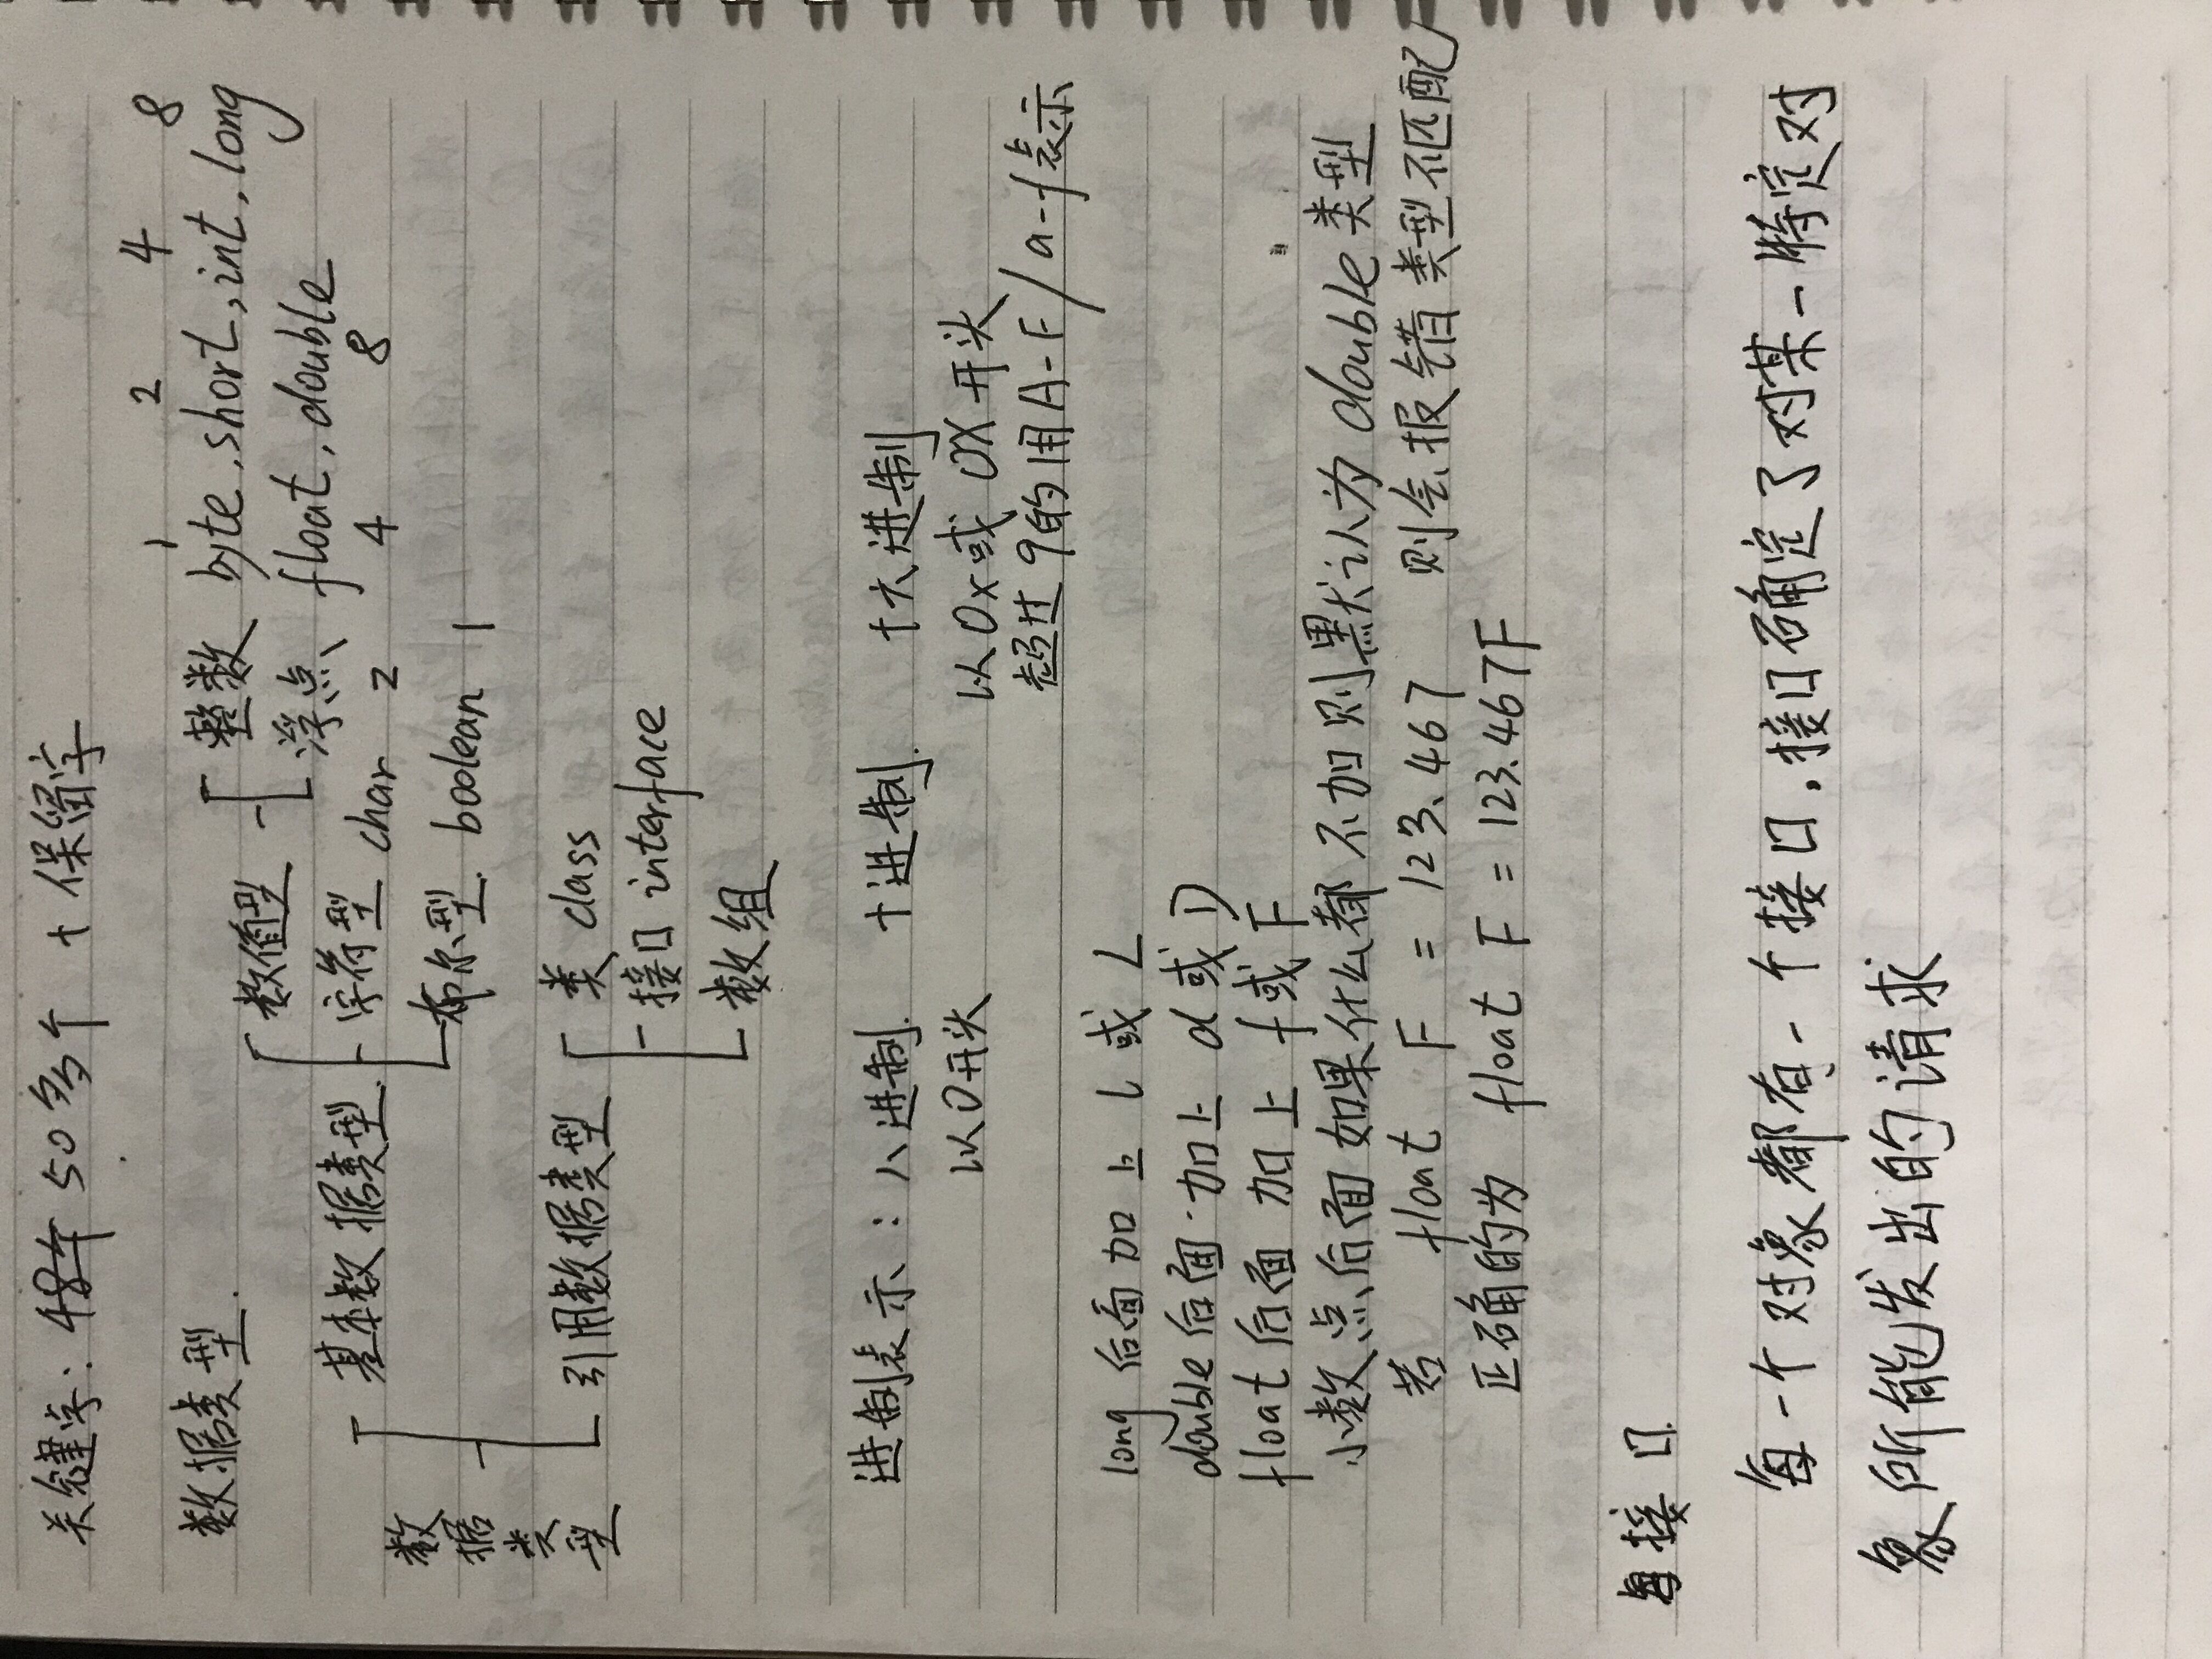 关键字: 48个 50多个 + 保留字
数据类型.
1 2 4 8
整数 byte, short, int, long
数值型
浮点 float, double
基本数据类型
字符型 char 2 4 8
布尔型. boolean 1
数据类型
引用数据类型
类 class
接口 interface
数组
进制表示: 八进制. 十进制. 十六进制
以0开头 以0x或 0X开头
超过9的用A-F/a-f表示
long 后面加上 l 或 L
double 后面加上 d 或 D
float 后面 加上 f或 F
小数点后面如果什么都不加则默认为double类型
若 float F = 123.467 则会报错类型不匹配
正确的为 float F = 123.467F
接口.
每一个对象都有一个接口.接口确定了对某一特定对
象所能发出的请求